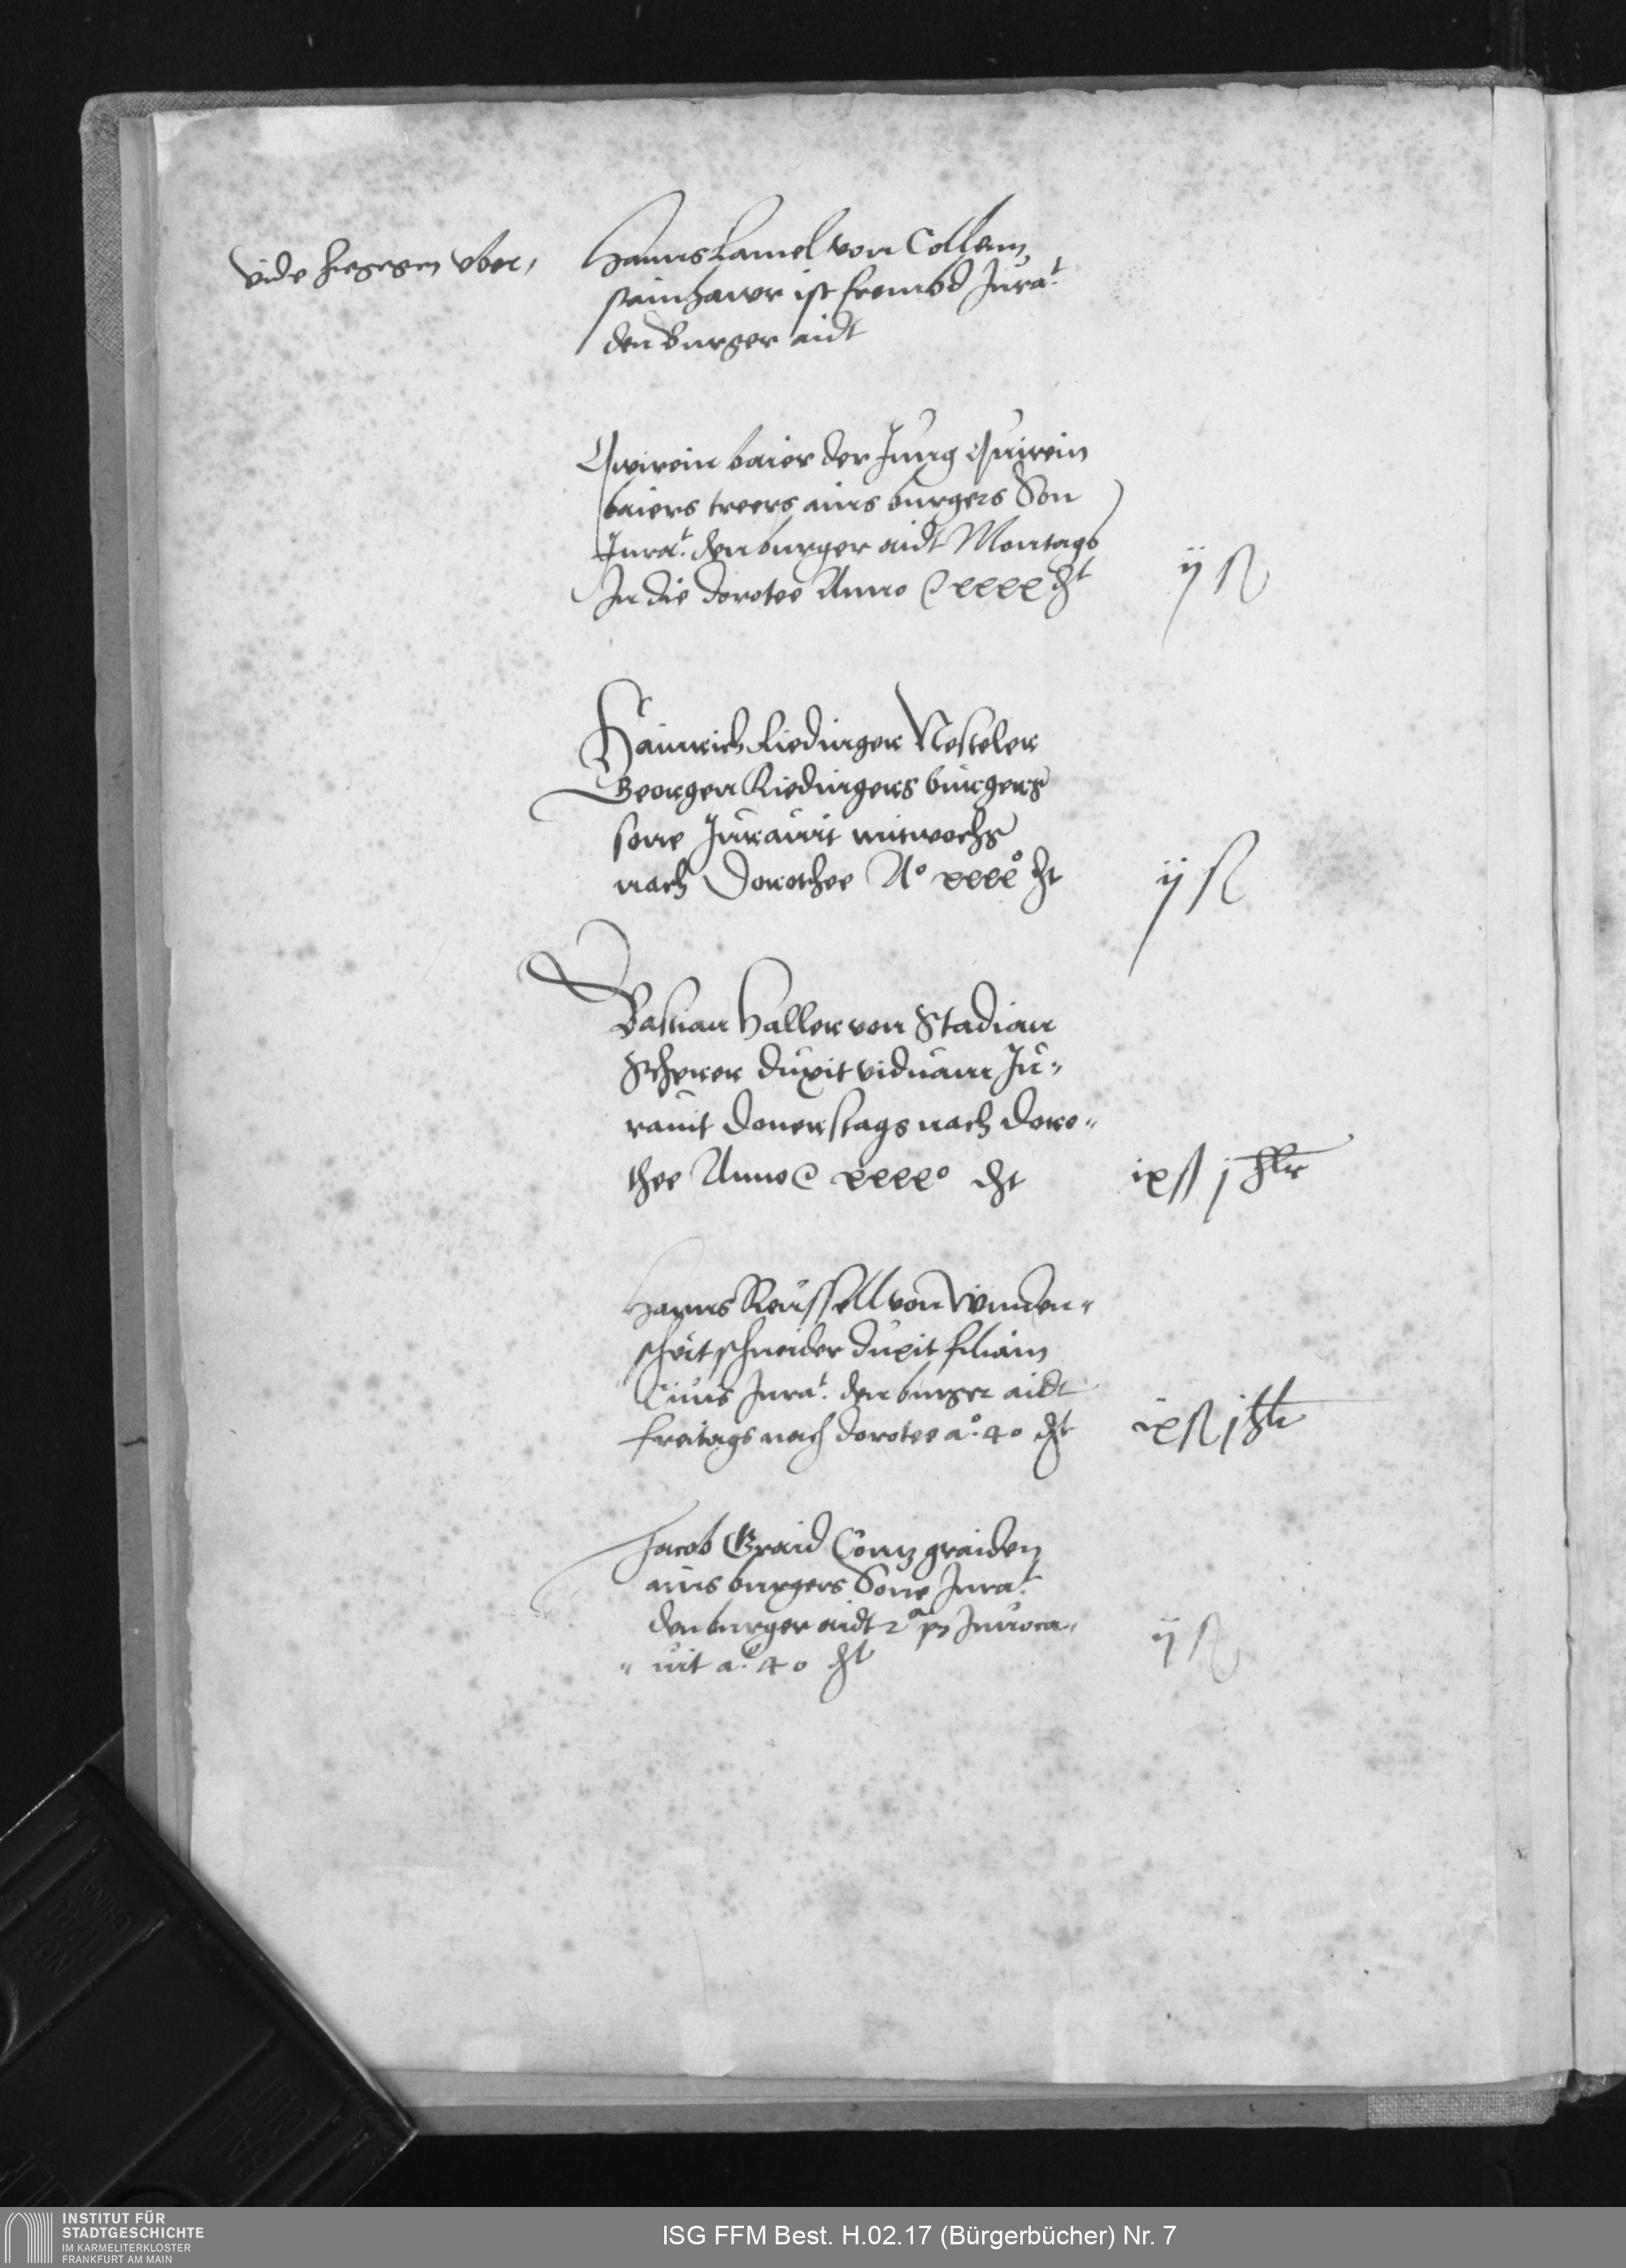 vide hiegegen uber,
Hanns Lamel von Collenn
stainhawer ist frembd Jurat.
den Burger aidt
Quirein baier der Jung Quirein
baiers treers ains burgers Son
Jurat. den burger aidt Montags
In die dorotee Anno xxxx dt
ij ß
Hainrich Riedinger Nesteler
Georgen Riedingers burgers
sone Jurauit mitwochs
nach Dorothee Aº xxxxº dt
ij ß
Bastian Haller von Stadian
Scherer duxit viduam Ju-
rauit Donerstags nach Doro-
thee Anno xxxxº dt
ix ß j hlr
Hanns Reussell von Winden-
scheit schneider duxit filiam
Ciuis Jurat. den burger aidt
freitags nach dorotee aº. 40 dt
ix ß j hlr
Jacob Graid Contz graiden
ains burgers Sone Jurat.
den burger aidt 2ª p9 Inuoca-
- uit aº. 40 dt
ij ß
INSTITUT FÜR
STADTGESCHICHTE
IM KARMELITERKLOSTER
FRANKFURT AM MAIN
ISG FFM Best. H.02.17 (Bürgerbücher) Nr. 7